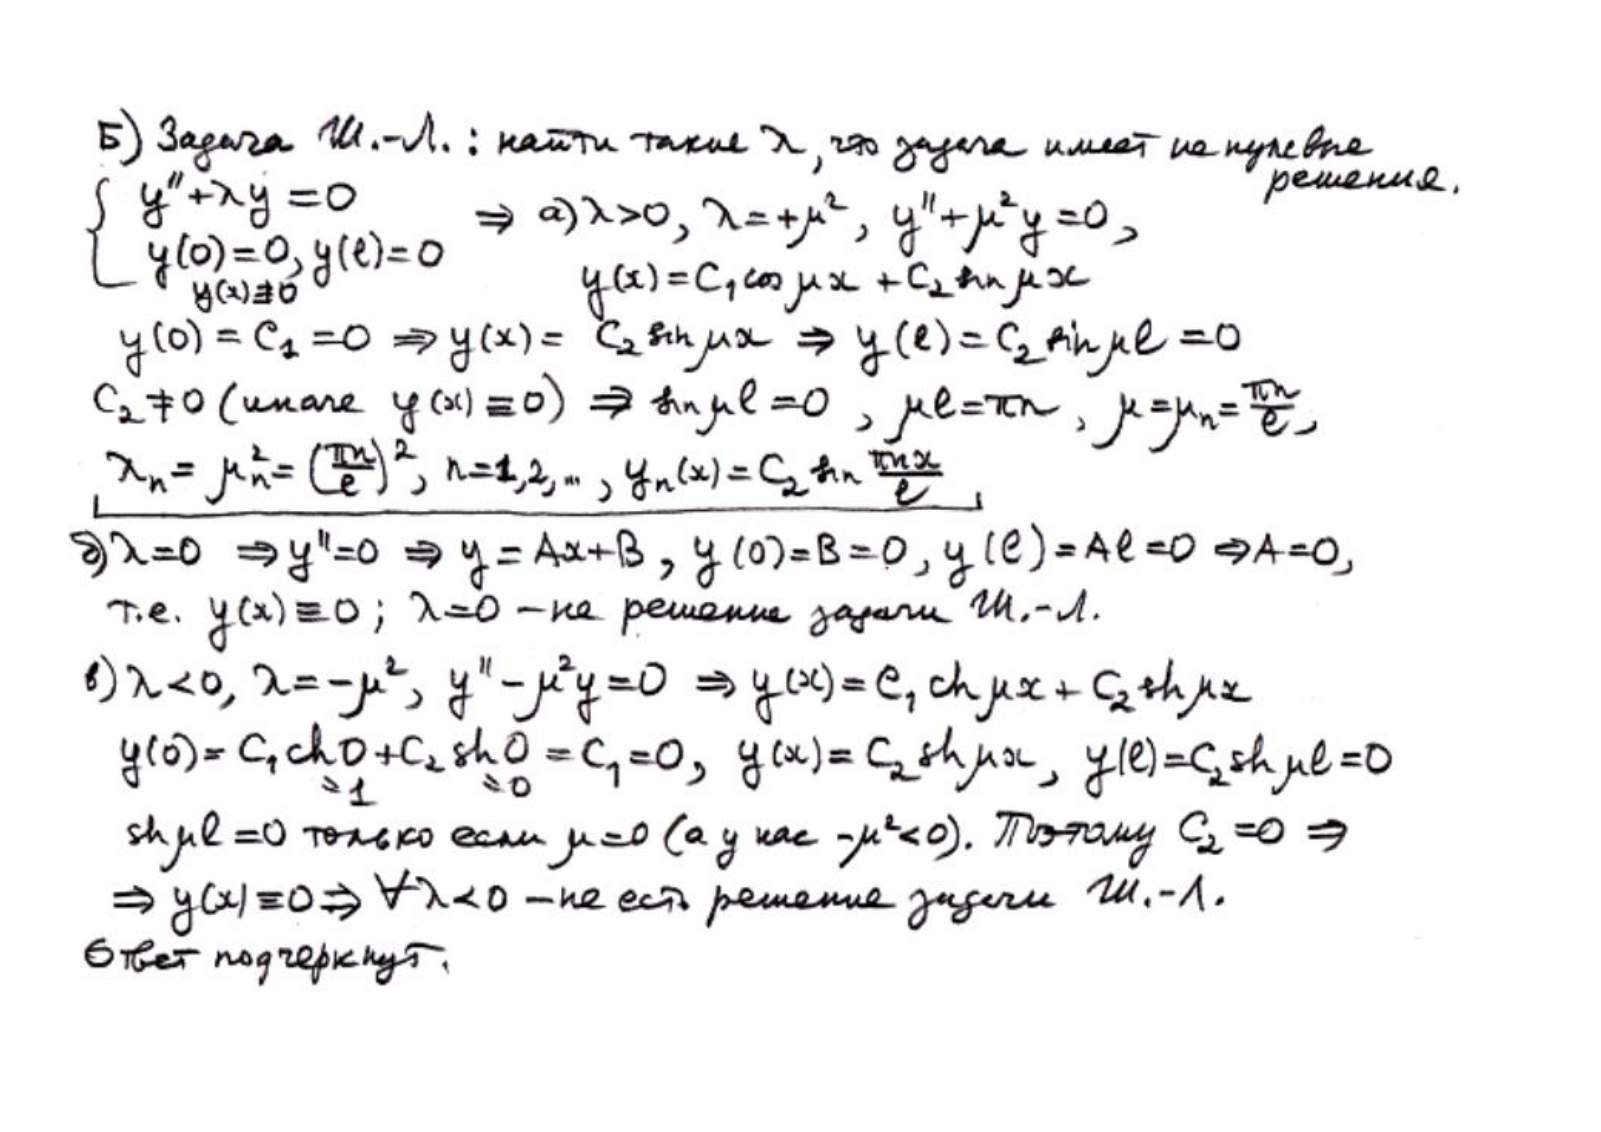 Б) Задача Ш.-Л.: найти такие λ, что задача имеет не нулевые
решения.
{ y'' + λy = 0
y(0) = 0, y(l) = 0
y(x) ≢ 0
⇒ а) λ > 0, λ = +μ², y'' + μ²y = 0,
y(x) = C₁ cos μx + C₂ sin μx
y(0) = C₁ = 0 ⇒ y(x) = C₂ sin μx ⇒ y(l) = C₂ sin μl = 0
C₂ ≠ 0 (иначе y(x) ≡ 0) ⇒ sin μl = 0, μl = πn, μ = μₙ = πn/l,
λₙ = μₙ² = (πn/l)², n = 1,2,..., yₙ(x) = C₂ sin πnx/l
б) λ = 0 ⇒ y'' = 0 ⇒ y = Ax + B, y(0) = B = 0, y(l) = Al = 0 ⇒ A = 0,
т.е. y(x) ≡ 0; λ = 0 – не решение задачи Ш.-Л.
в) λ < 0, λ = -μ², y'' - μ²y = 0 ⇒ y(x) = C₁ ch μx + C₂ sh μx
y(0) = C₁ ch 0 + C₂ sh 0 = C₁ = 0, y(x) = C₂ sh μx, y(l) = C₂ sh μl = 0
=1 =0
sh μl = 0 только если μ = 0 (а у нас -μ² < 0). Поэтому C₂ = 0 ⇒
⇒ y(x) ≡ 0 ⇒ ∀ λ < 0 – не есть решение задачи Ш.-Л.
Ответ подчеркнут.